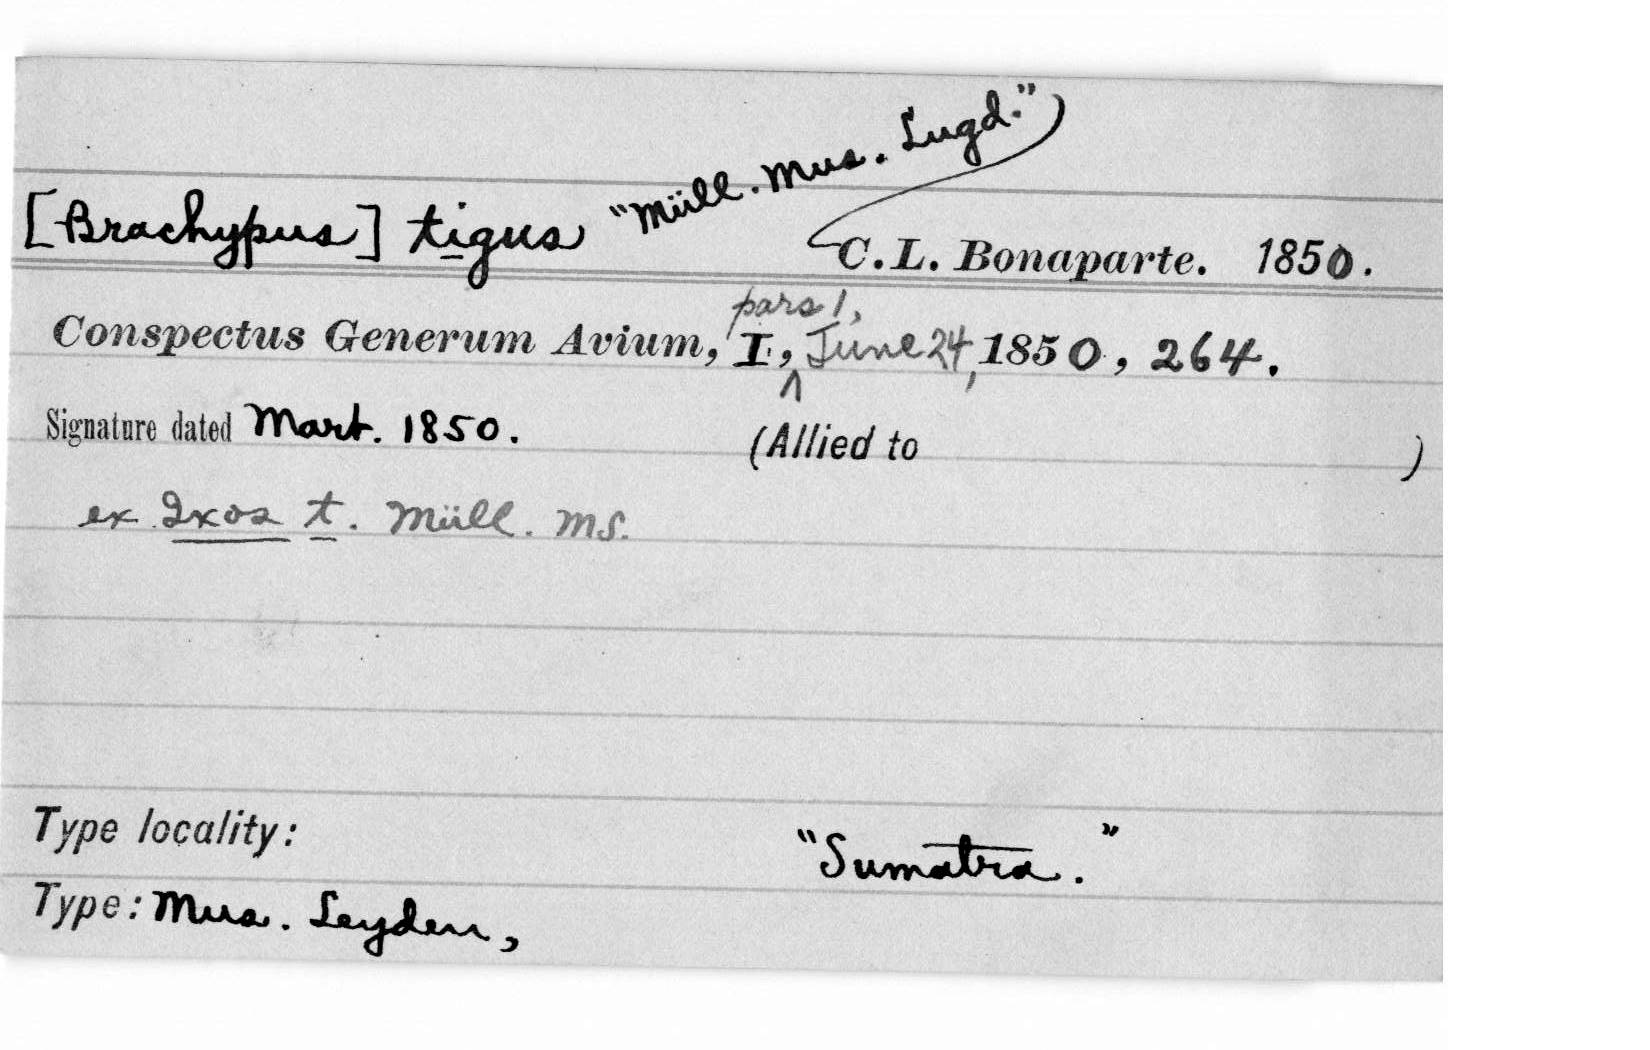 [Brachypus] tigus "Müll. Mus. Lugd.")
C. L. Bonaparte. 1850.
pars 1,
Conspectus Generum Avium, I, June 24, 1850, 264.
Signature dated Mart. 1850. (Allied to )
ex Ixos t. Müll. MS.
Type locality: "Sumatra."
Type: Mus. Leyden,